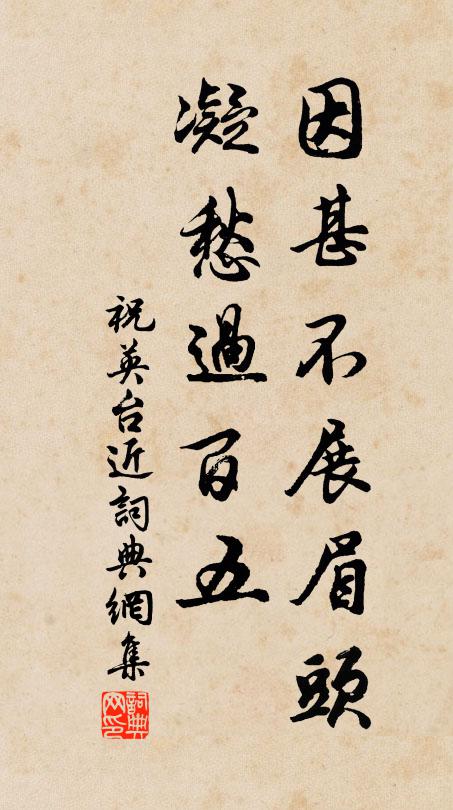 因甚不展眉頭
凝愁過百五
祝英台近詞典網集
詞典
网印